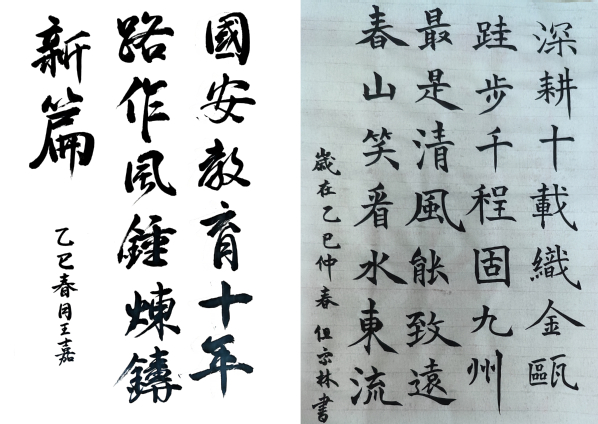 國安教育十年
路作風錘煉鑄
新篇
乙巳春月王嘉
深耕十載織金甌
跬步千程固九州
最是清風能致遠
春山笑看水東流
歲在乙巳仲春 林書